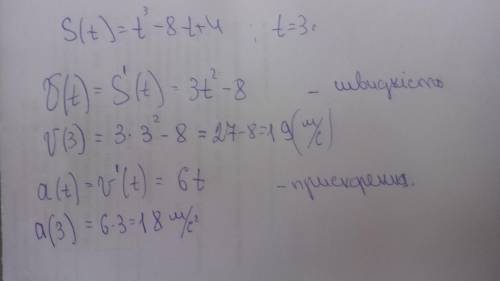 S(t) = t³ - 8t + 4 ; t = 3c
v(t) = S'(t) = 3t² - 8 - швидкість
v(3) = 3 · 3² - 8 = 27 - 8 = 19 (м/с)
a(t) = v'(t) = 6t - прискорення.
a(3) = 6 · 3 = 18 м/с²